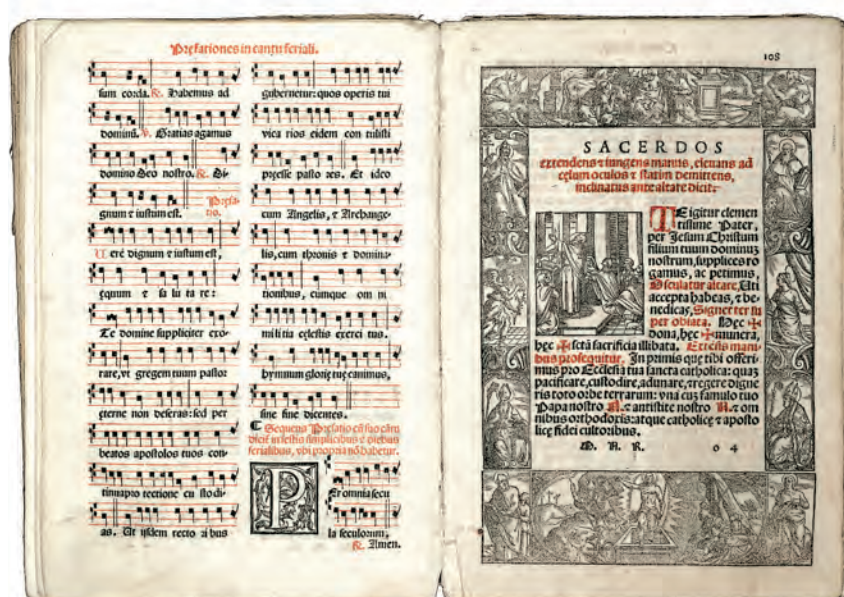 Prefationes in cantu feriali.
sum corda. ꝶ. Habemus ad
dominũ. ℣. Gratias agamus
domino deo nostro. ꝶ. Di-
gnum et iustum est.
Prefa-
tio.
Uere dignum ⁊ iustum est,
equum ⁊ sa lu ta re:
Te domine suppliciter exo-
rare, vt gregem tuum pastor
eterne non deseras: sed per
beatos apostolos tuos con-
tinua pro tectione cu sto di-
as. Ut ijsdem recto ri bus
gubernetur: quos operis tui
vica rios eidem con tulisti
preesse pasto res. Et ideo
cum Angelis, ⁊ Archange-
lis, cum thronis ⁊ domina-
tionibus, cumque om ni
militia celestis exerci tus.
hymnum glorię tuę canimus,
sine fine dicentes.
¶ Sequens Prefatio cũ suo cãtu
dicit̃ in festis simplicibus ⁊ diebus
ferialibus, vbi propria nõ habetur.
PEr omnia secu
la seculorum,
ꝶ. Amen.
108
SACERDOS
extendens ⁊ iungens manus, eleuans ad
cęlum oculos ⁊ statim demittens,
inclinatus ante altare dicit:
TE igitur clemen
tissime Pater,
per Jesum Christum
filium tuum dominuz
nostrum, supplices ro
gamus, ac petimus,
Osculatur altare, Uti
accepta habeas, ⁊ be-
nedicas, Signet ter su
per oblata. Hęc ✠
dona, hęc ✠ munera,
hęc ✠ sctã sacrificia illibata. Extẽsis mani
bus prosequitur. In primis que tibi offeri
mus pro Ecclesia tua sancta catholica: quaz
pacificare, custodire, adunare, ⁊ regere digne
ris toto orbe terrarum: vna cuz famulo tuo
Papa nostro N. ⁊ antistite nostro N. ⁊ om
nibus orthodoxis: atque catholicę ⁊ aposto
licę fidei cultoribus.
M. A. R. o 4